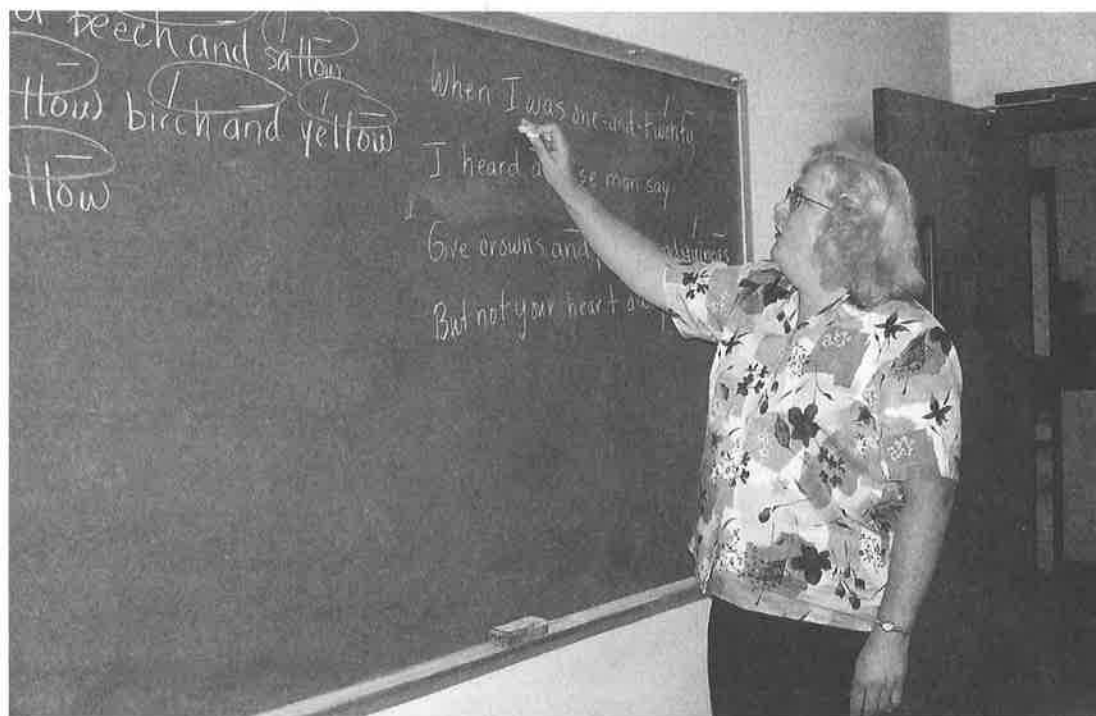 beech and sallow
llow birch and yellow
llow
When I was one-and-twenty
I heard a man say
Give crowns and guineas
But not your heart